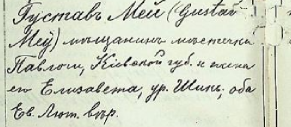 Густавъ Мей (Gustav
Meÿ) мѣщанинъ мѣстечка
Павлочи, Кіевской губ. и жена
его Елизавета, ур. Шинъ; оба
Ев. Лют. вѣр.